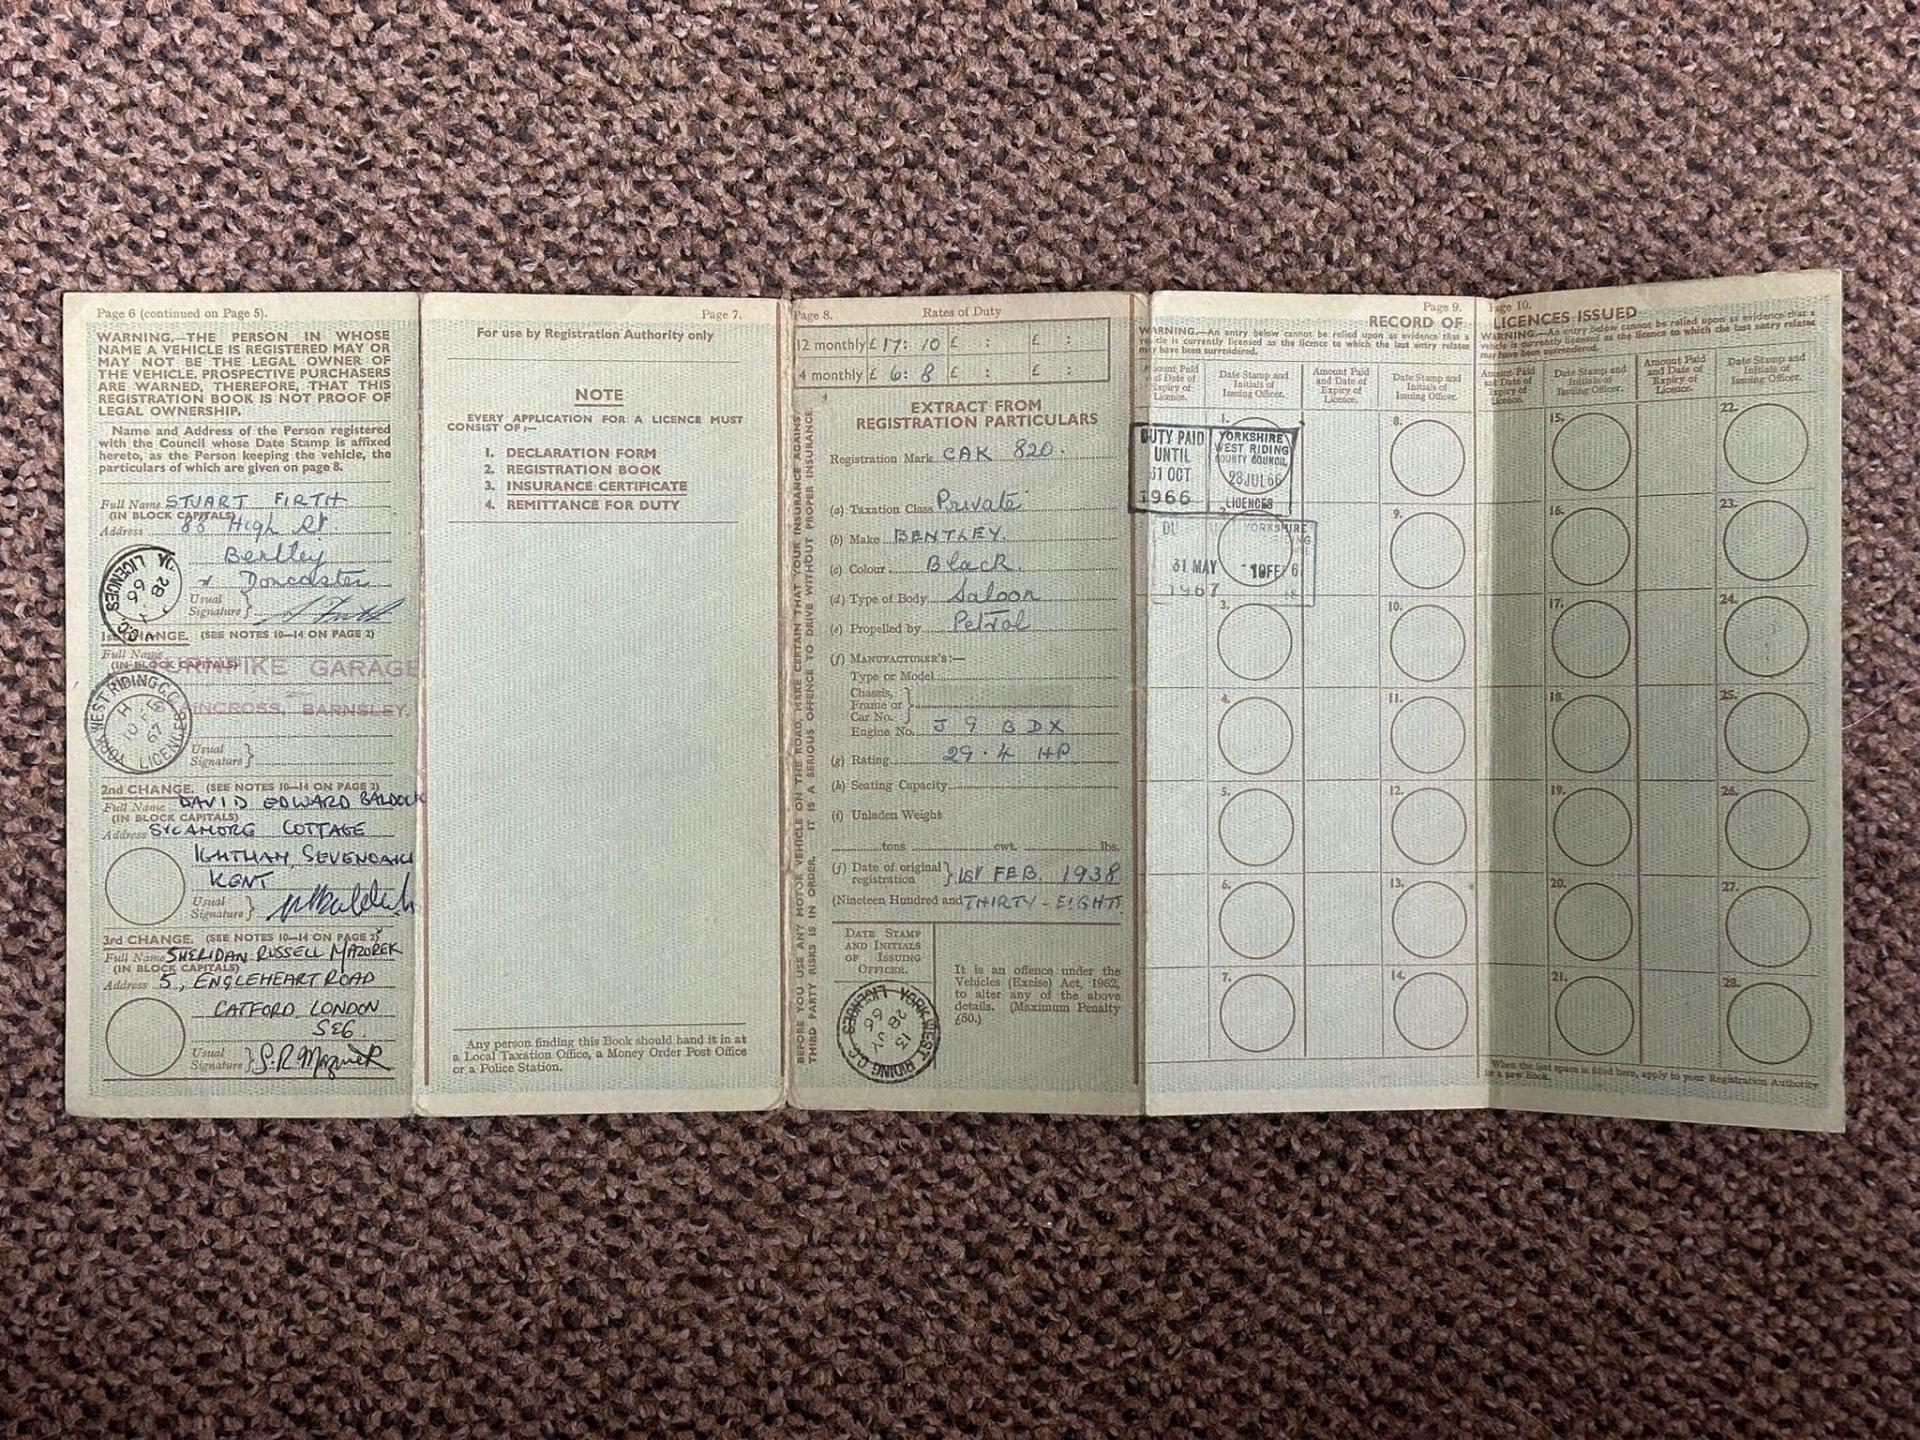 Page 6 (continued on Page 5).
WARNING.—THE PERSON IN WHOSE
NAME A VEHICLE IS REGISTERED MAY OR
MAY NOT BE THE LEGAL OWNER OF
THE VEHICLE. PROSPECTIVE PURCHASERS
ARE WARNED, THEREFORE, THAT THIS
REGISTRATION BOOK IS NOT PROOF OF
LEGAL OWNERSHIP.
Name and Address of the Person registered
with the Council whose Date Stamp is affixed
hereto, as the Person keeping the vehicle, the
particulars of which are given on page 8.
Full Name STUART FIRTH
(IN BLOCK CAPITALS)
Address 88 High St.
Bentley
Doncaster
Usual
Signature
LICENCES
28
66
1st CHANGE. (SEE NOTES 10—14 ON PAGE 2)
Full Name
(IN BLOCK CAPITALS)
GARAGE
BARNSLEY.
YORK WEST RIDING C.C.
10 FE
67
LICENCES
Usual
Signature
2nd CHANGE. (SEE NOTES 10—14 ON PAGE 2)
Full Name DAVID EDWARD BALDOCK
(IN BLOCK CAPITALS)
Address SYCAMORE COTTAGE
IGHTHAM, SEVENOAKS
KENT
Usual
Signature
3rd CHANGE. (SEE NOTES 10—14 ON PAGE 2)
Full Name SHERIDAN RUSSELL MAZOREK
(IN BLOCK CAPITALS)
Address 5, ENGLEHEART ROAD
CATFORD, LONDON
SE6.
Usual
Signature S.R. Mazorek
Page 7.
For use by Registration Authority only
NOTE
EVERY APPLICATION FOR A LICENCE MUST
CONSIST OF:—
1. DECLARATION FORM
2. REGISTRATION BOOK
3. INSURANCE CERTIFICATE
4. REMITTANCE FOR DUTY
Any person finding this Book should hand it in at
a Local Taxation Office, a Money Order Post Office
or a Police Station.
Page 8. Rates of Duty
12 monthly £ 17: 10 £ : £ :
4 monthly £ 6: 8 £ : £ :
BEFORE YOU USE ANY MOTOR VEHICLE ON THE ROAD, MAKE CERTAIN THAT YOUR INSURANCE AGAINST
THIRD PARTY RISKS IS IN ORDER. IT IS A SERIOUS OFFENCE TO DRIVE WITHOUT PROPER INSURANCE
EXTRACT FROM
REGISTRATION PARTICULARS
Registration Mark CAK 820.
(a) Taxation Class Private
(b) Make BENTLEY.
(c) Colour Black.
(d) Type of Body Saloon
(e) Propelled by Petrol
(f) MANUFACTURER'S:—
Type or Model
Chassis,
Frame or
Car No.
Engine No. J 9 BDX
(g) Rating 29.4 HP
(h) Seating Capacity
(i) Unladen Weight
tons cwt. lbs.
(j) Date of original
registration 1st FEB. 1938
(Nineteen Hundred and THIRTY-EIGHT)
DATE STAMP
AND INITIALS
OF ISSUING
OFFICER.
YORK WEST RIDING C.C. LICENCES
13
28 JY
66
It is an offence under the
Vehicles (Excise) Act, 1962,
to alter any of the above
details. (Maximum Penalty
£50.)
Page 9. Page 10.
RECORD OF LICENCES ISSUED
WARNING.—An entry below cannot be relied upon as evidence that a
vehicle is currently licensed as the licence to which the last entry relates
may have been surrendered.
WARNING.—An entry below cannot be relied upon as evidence that a
vehicle is currently licensed as the licence to which the last entry relates
may have been surrendered.
Amount Paid and Date of Expiry of Licence.
Date Stamp and Initials of Issuing Officer.
Amount Paid and Date of Expiry of Licence.
Date Stamp and Initials of Issuing Officer.
Amount Paid and Date of Expiry of Licence.
Date Stamp and Initials of Issuing Officer.
Amount Paid and Date of Expiry of Licence.
Date Stamp and Initials of Issuing Officer.
1. 8. 15. 22.
DUTY PAID
UNTIL
31 OCT
1966
YORKSHIRE
WEST RIDING
COUNTY COUNCIL
28 JUL 66
LICENCES
2. 9. 16. 23.
YORKSHIRE
31 MAY
1967
3. 10. 17. 24.
4. 11. 18. 25.
5. 12. 19. 26.
6. 13. 20. 27.
7. 14. 21. 28.
When the last space is filled here, apply to your Registration Authority
for a new Book.